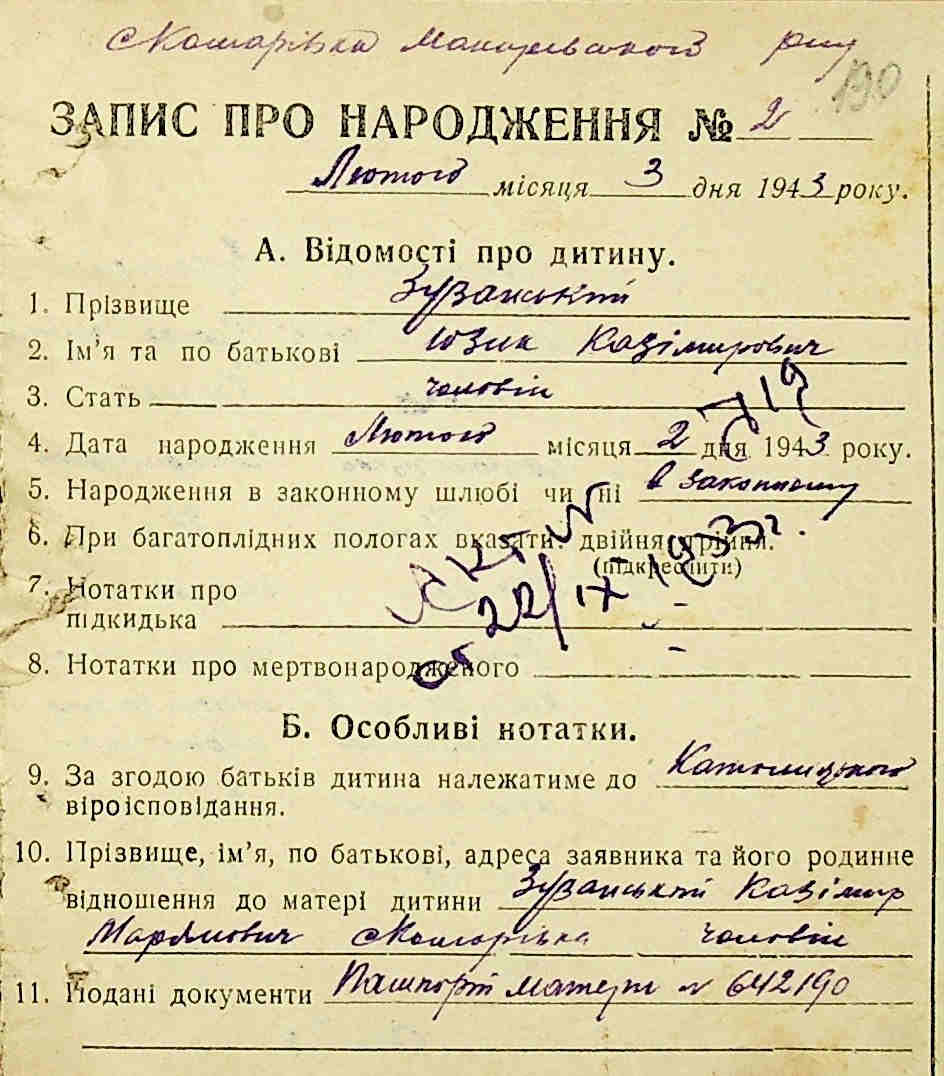 с Комарівка Макарівського р-ну
190
ЗАПИС ПРО НАРОДЖЕННЯ № 2
Лютого місяця 3 дня 1943 року.
А. Відомості про дитину.
1. Прізвище Зузанський
2. Ім'я та по батькові Юзик Казімирович
3. Стать чоловік
4. Дата народження Лютого місяця 2 дня 1943 року.
5. Народження в законному шлюбі чи ні в законному
6. При багатоплідних пологах вказати: двійня, трійня.
(підкреслити)
7. Нотатки про
підкидька
8. Нотатки про мертвонародженого
Б. Особливі нотатки.
9. За згодою батьків дитина належатиме до Католицького
віроісповідання.
10. Прізвище, ім'я, по батькові, адреса заявника та його родинне
відношення до матері дитини Зузанський Казімир
Марянович с Комарівка чоловік
11. Подані документи Пашпорт матери № 642190